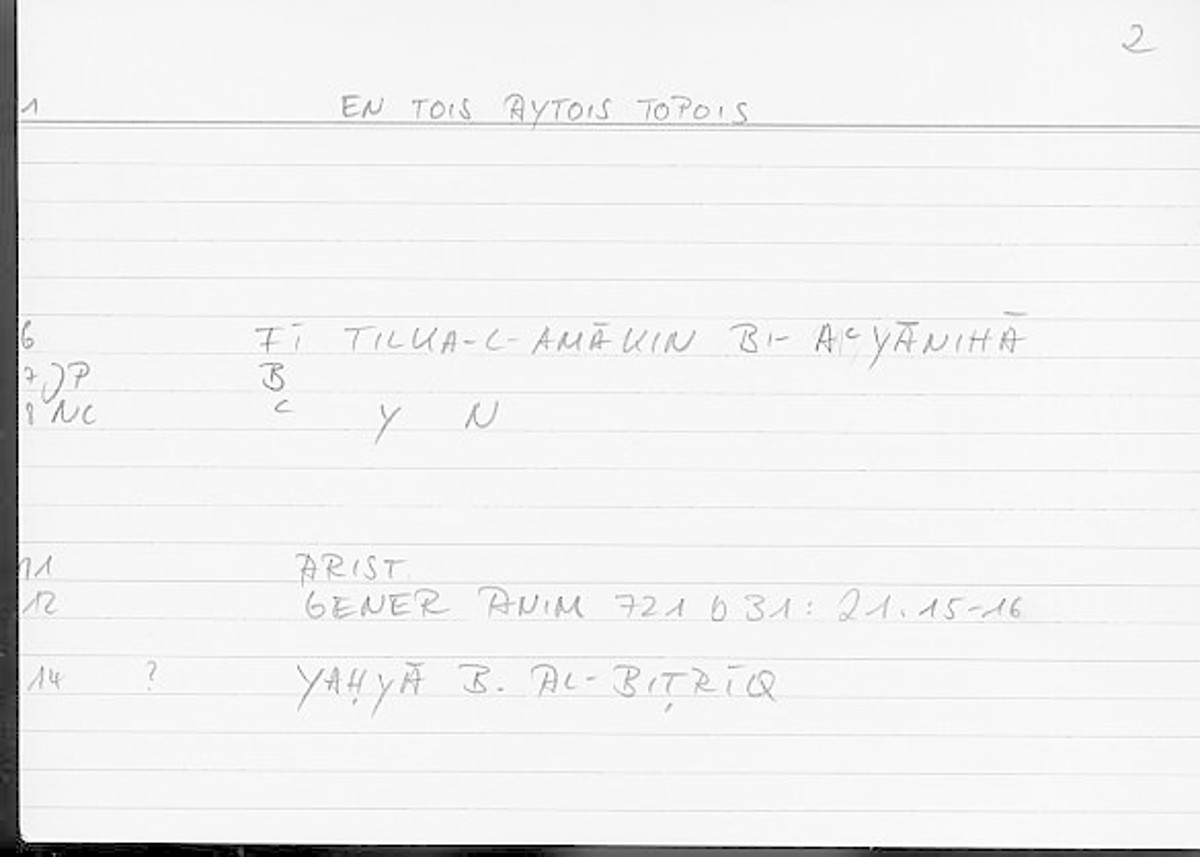 2
1 EN TOIS AYTOIS TOPOIS
6 FĪ TILKA-L-AMĀKIN BI-AʿYĀNIHĀ
7 JP B
8 NC ʿ Y N
11 ARIST.
12 GENER ANIM 721 b 31: 21.15-16
14 ? YAḤYĀ B. AL-BIṬRĪQ